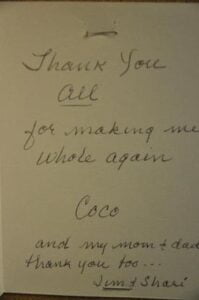 Thank You
All
for making me
whole again
Coco
and my mom & dad
thank you too...
Jim & Shari